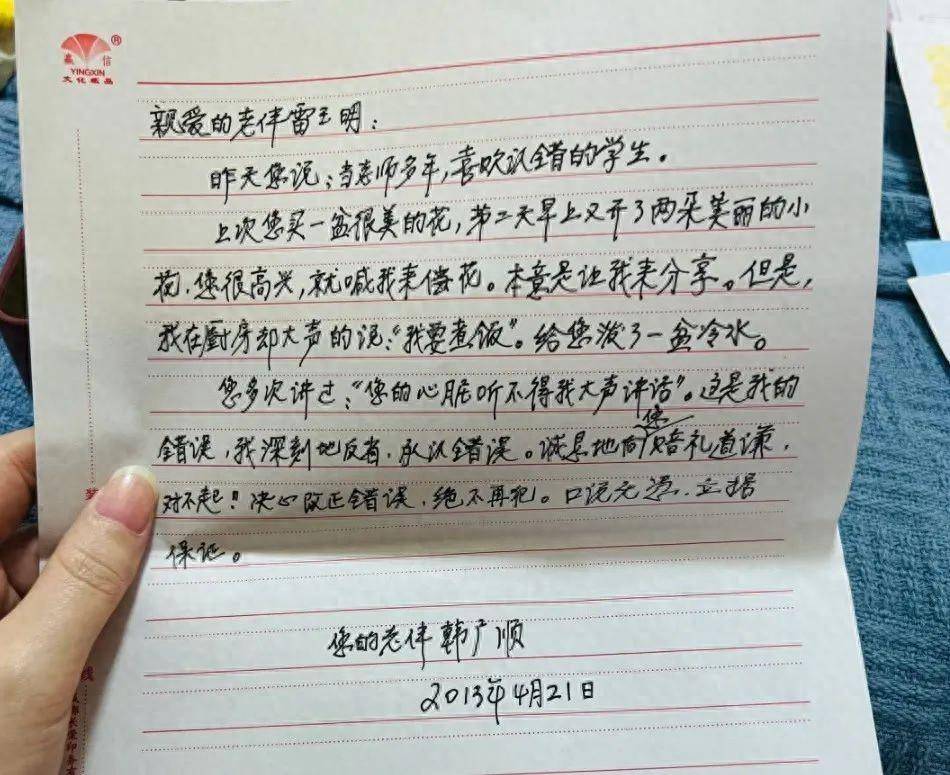 赢信
YINGXIN
文化纸品
亲爱的老伴雷玉明：
昨天您说：当老师多年，喜欢认错的学生。
上次您买一盆很美的花，第二天早上又开了两朵美丽的小
花，您很高兴，就喊我来偿花。本意是让我来分享。但是，
我在厨房却大声的说：“我要煮饭”。给您泼了一盆冷水。
您多次讲过：“您的心脏听不得我大声讲话”。这是我的
错误，我深刻地反省，承认错误。诚恳地向您赔礼道谦，
对不起！决心改正错误，绝不再犯。口说无凭，立据
保证。
您的老伴韩广顺
2013年4月21日
装
线